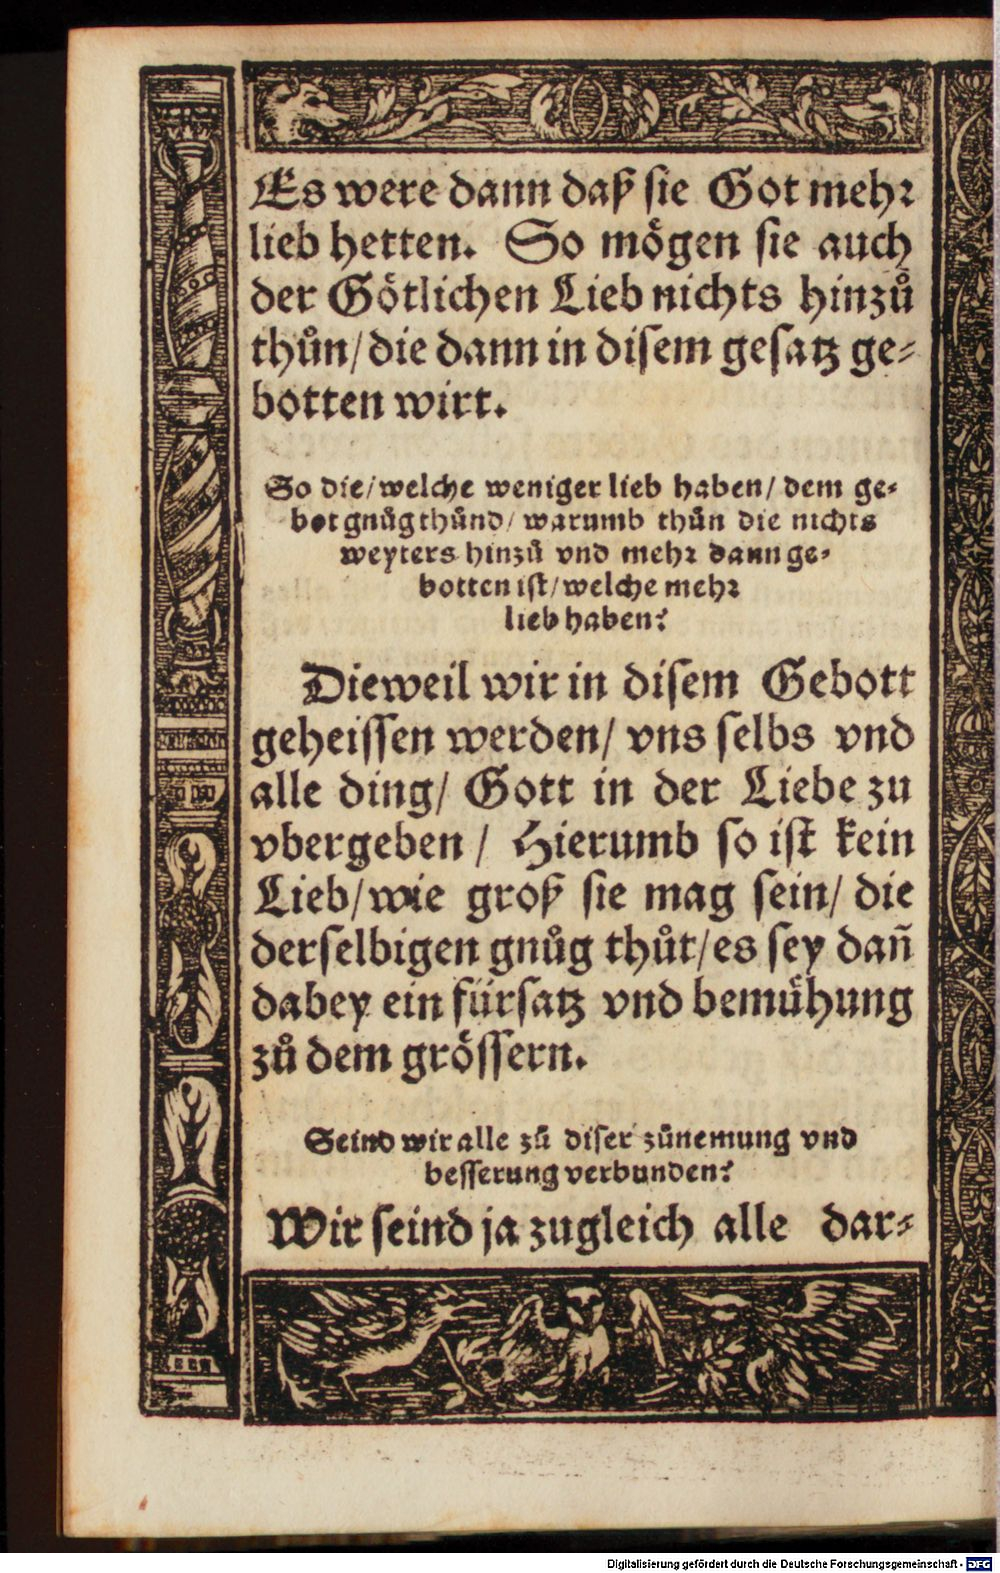 Es were dann daß sie Got mehr
lieb hetten. So mögen sie auch
der Götlichen Lieb nichts hinzů
thůn/ die dann in disem gesatz ge-
botten wirt.
So die/ welche weniger lieb haben/ dem ge-
bot gnůg thůnd/ warumb thůn die nichts
weyters hinzů vnd mehr dann ge-
botten ist/ welche mehr
lieb haben?
Dieweil wir in disem Gebott
geheissen werden/ vns selbs vnd
alle ding/ Gott in der Liebe zu
vbergeben / Hierumb so ist kein
Lieb/ wie groß sie mag sein/ die
derselbigen gnůg thůt/ es sey dañ
dabey ein fürsatz vnd bemühung
zů dem grössern.
Seind wir alle zů diser zůnemung vnd
besserung verbunden?
Wir seind ja zugleich alle dar-
Digitalisierung gefördert durch die Deutsche Forschungsgemeinschaft - DFG